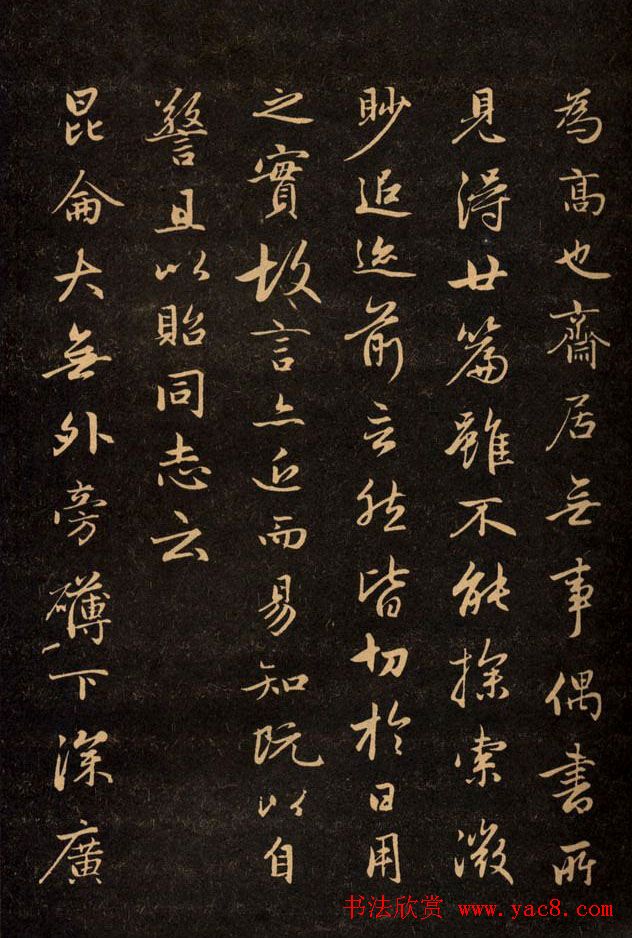 為高也齋居無事偶書所
見得廿篇雖不能探索微
眇追迹前言然皆切於日用
之實故言亦近而易知既以自
警且以貽同志云
昆侖大無外旁礴下深廣
书法欣赏 www.yac8.com